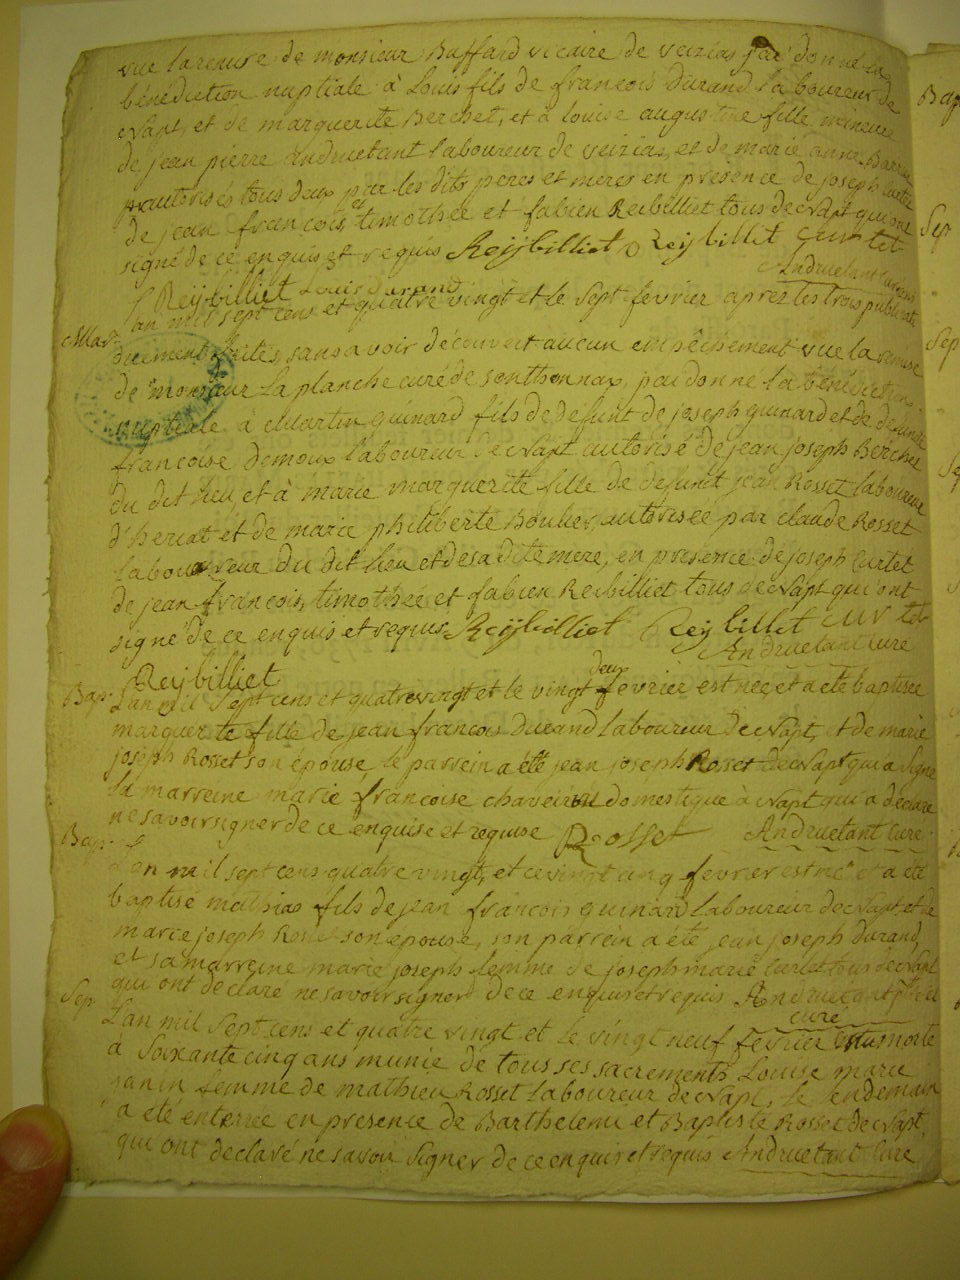 vue la remise de monsieur Buffard vicaire de veizias j'ai donné la
bénédiction nuptiale à Louis fils de francois Durand laboureur de
Napt, et de marguerite Berchet, et à louise augustine fille mineure
de jean pierre andruetant laboureur de veizias, et de marie anne
autorisés tous deux par les dits peres et meres en présence de joseph curtet
de jean francois, timothée et fabien Reibilliet tous de Napt qui ont
signé de ce enquis et requis Reijbilliet Reijbillet curtet
Reijbilliet Louis Durand Andruetant curé
Mar. L'an mil sept cens et quatre vingt et le sept fevrier après les trois publicat
duement faites, sans avoir découvert aucun empêchement vue la remise
de monsieur La planche curé de sonthonnax, j'ai donné la bénédiction
nuptiale à Martin guinard fils de defunt de joseph guinard et de défunte
francoise demoux laboureur de Napt autorisé de jean joseph Berchet
du dit lieu et à marie marguerite fille de defunt jean Rosset laboureur
d'heriat et de marie philiberte Boulier, autorisée par claude Rosset
laboureur du dit lieu et de sa dite mere, en presence de joseph Curtet
de jean francois, timothee et fabien Reibilliet tous de Napt qui ont
signé de ce enquis et requis Reijbilliet Reijbillet curtet
Reijbilliet Andruetant Curé
deux
Bap. L'an mil sept cens et quatrevingt et le vingt fevrier est née, et a eté baptisée
marguerite fille de jean francois Durand laboureur de Napt, et de marie
joseph Rosset son épouse, le parrein a été jean joseph Rosset de Napt qui a signé
la marreine marie francoise domestique à Napt qui a declaré
ne savoir signer de ce enquise et requise Rosset Andruetant Curé
Bap. L'an mil sept cens quatre vingt, et ce vingt cinq fevrier est né et a été
baptisé mathias fils de jean francois guinard laboureur de Napt et de
marie joseph Rosset son epouse, son parrein a été jean joseph Durand,
et sa marreine marie joseph femme de joseph marie Curtet tous de Napt
qui ont déclaré ne savoir signer de ce enquis et requis Andruetant
curé
Sep L'an mil sept cens et quatre vingt et le vingt neuf fevrier est morte
à soixante cinq ans munie de tous ses sacrements Louise marie
janin femme de mathieu Rosset laboureur de Napt, le lendemain
a été enterrée en presence de Barthelemi et Baptiste Rosset de Napt,
qui ont declaré ne savoir signer de ce enquis et requis Andruetant Curé
Bap
Sep
Sep